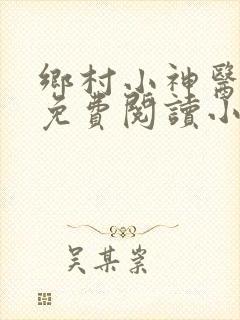 鄉村小神醫
免費閱讀小
吴某某